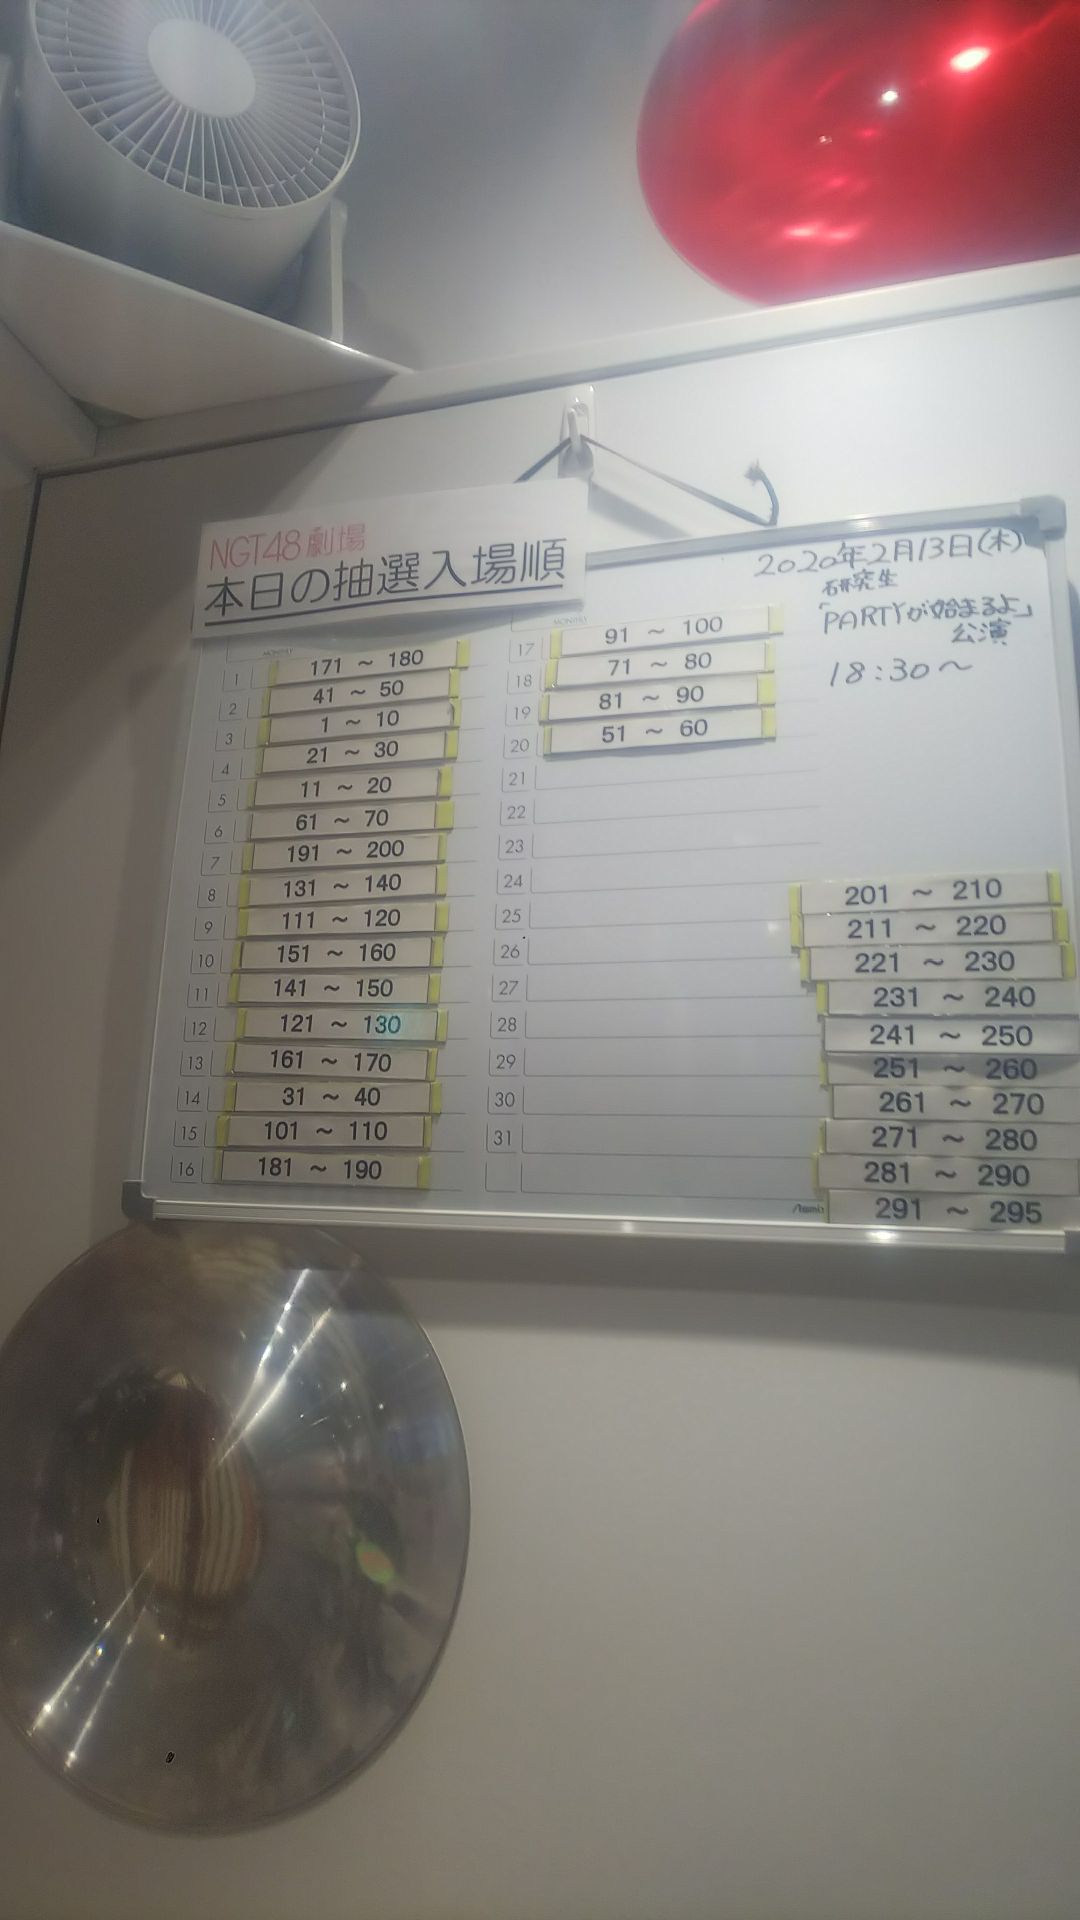 NGT48劇場
本日の抽選入場順
MONTHLY
1 171 ～ 180
2 41 ～ 50
3 1 ～ 10
4 21 ～ 30
5 11 ～ 20
6 61 ～ 70
7 191 ～ 200
8 131 ～ 140
9 111 ～ 120
10 151 ～ 160
11 141 ～ 150
12 121 ～ 130
13 161 ～ 170
14 31 ～ 40
15 101 ～ 110
16 181 ～ 190
MONTHLY
17 91 ～ 100
18 71 ～ 80
19 81 ～ 90
20 51 ～ 60
21
22
23
24
25
26
27
28
29
30
31
2020年2月13日(木)
研究生
「PARTYが始まるよ」
公演
18:30～
201 ～ 210
211 ～ 220
221 ～ 230
231 ～ 240
241 ～ 250
251 ～ 260
261 ～ 270
271 ～ 280
281 ～ 290
291 ～ 295